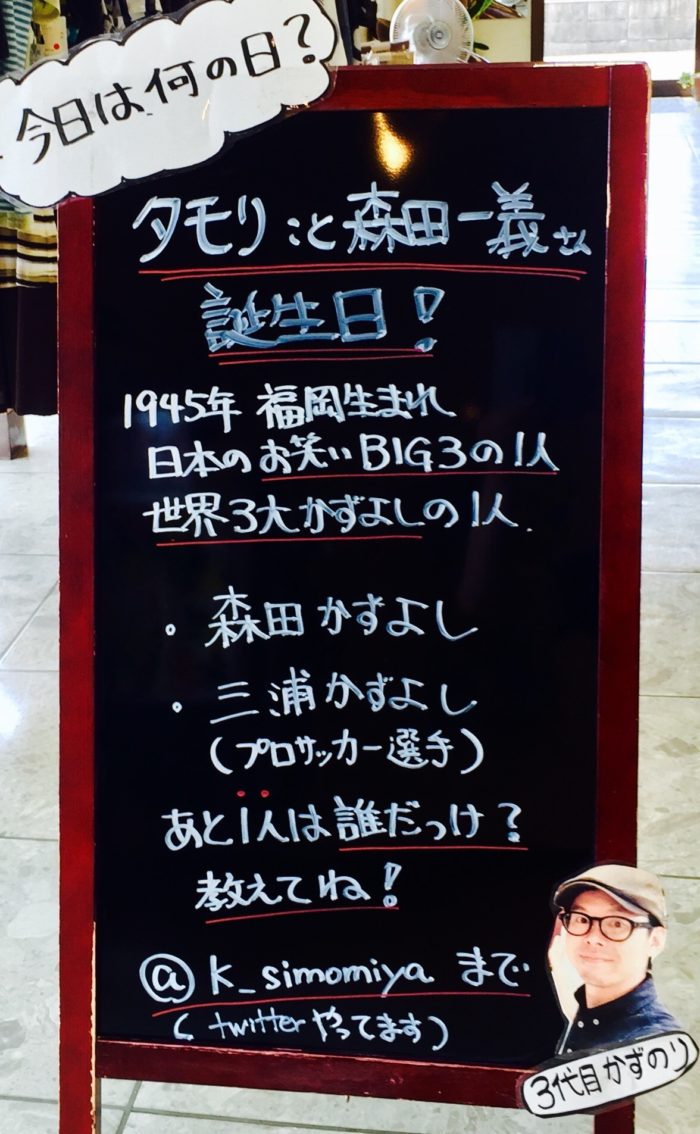 今日は何の日?
タモリこと森田一義さん
誕生日!
1945年 福岡生まれ
日本のお笑いBIG3の1人
世界3大かずよしの1人.
・森田かずよし
・三浦かずよし
(プロサッカー選手)
あと1人は誰だっけ?
教えてね!
@k_simomiya まで
(twitterやってます)
3代目かずのり